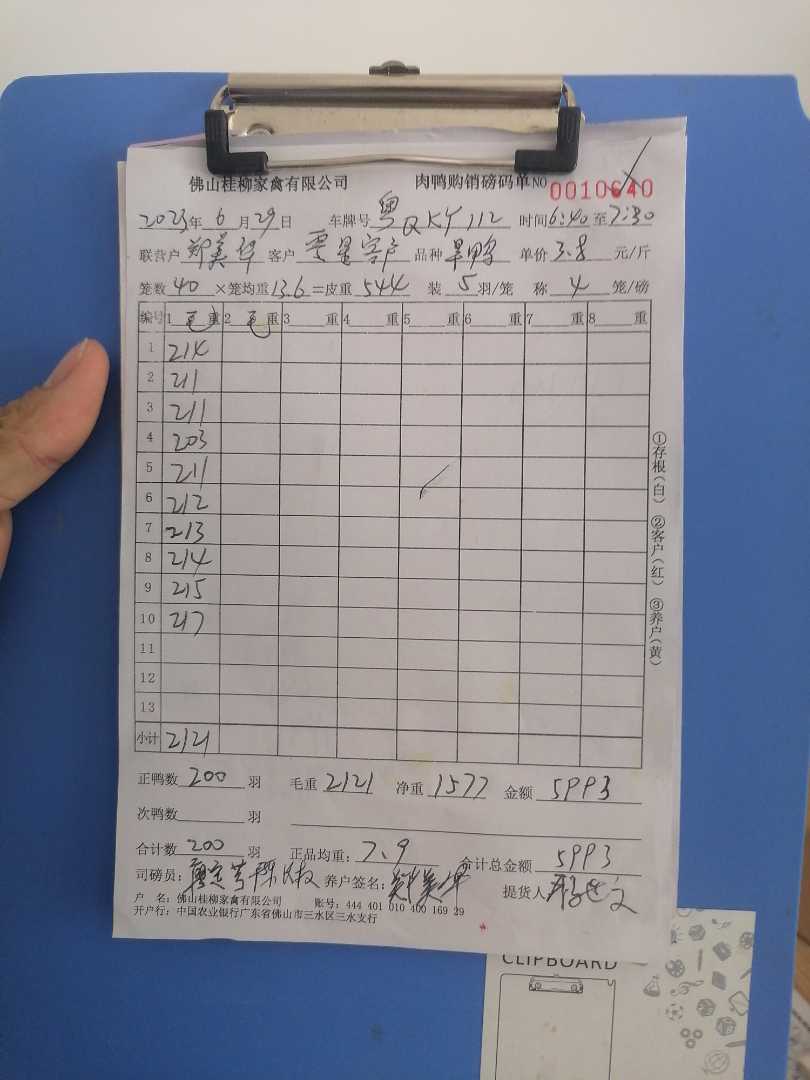 佛山桂柳家禽有限公司 肉鸭购销磅码单 NO 0010640
2023年 6 月 29 日 车牌号 粤QKY112 时间 6:40 至 7:30
联营户 郑美华 客户 零星客户 品种 旱鸭 单价 3.8 元/斤
笼数 40 ×笼均重 13.6 =皮重 544 装 5 羽/笼 称 4 笼/磅
编号 1 毛 重 2 毛 重 3 重 4 重 5 重 6 重 7 重 8 重
1 214
2 211
3 211
4 203
5 211
6 212
7 213
8 214
9 215
10 217
11
12
13
小计 2121
①存根(白) ②客户(红) ③养户(黄)
正鸭数 200 羽 毛重 2121 净重 1577 金额 5993
次鸭数 羽
合计数 200 羽 正品均重: 7.9 合计总金额 5993
司磅员: 养户签名: 郑美华 提货人
户 名: 佛山桂柳家禽有限公司 账号: 444 401 010 400 169 29
开户行: 中国农业银行广东省佛山市三水区三水支行
CLIPBOARD